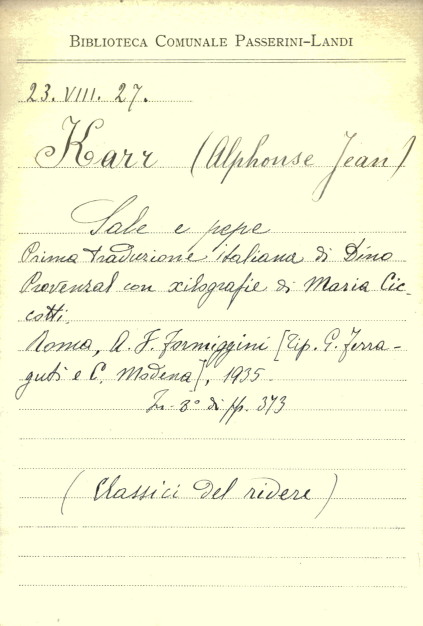 BIBLIOTECA COMUNALE PASSERINI-LANDI
23. VIII. 27.
Karr (Alphonse Jean)
Sale e pepe
Prima traduzione italiana di Dino
Provenzal con xilografie di Maria Cic-
cotti.
Roma, A. F. Formiggini [Tip. G. Ferra-
guti e C. Modena], 1935.
In-8° di pp. 373
(Classici del ridere)